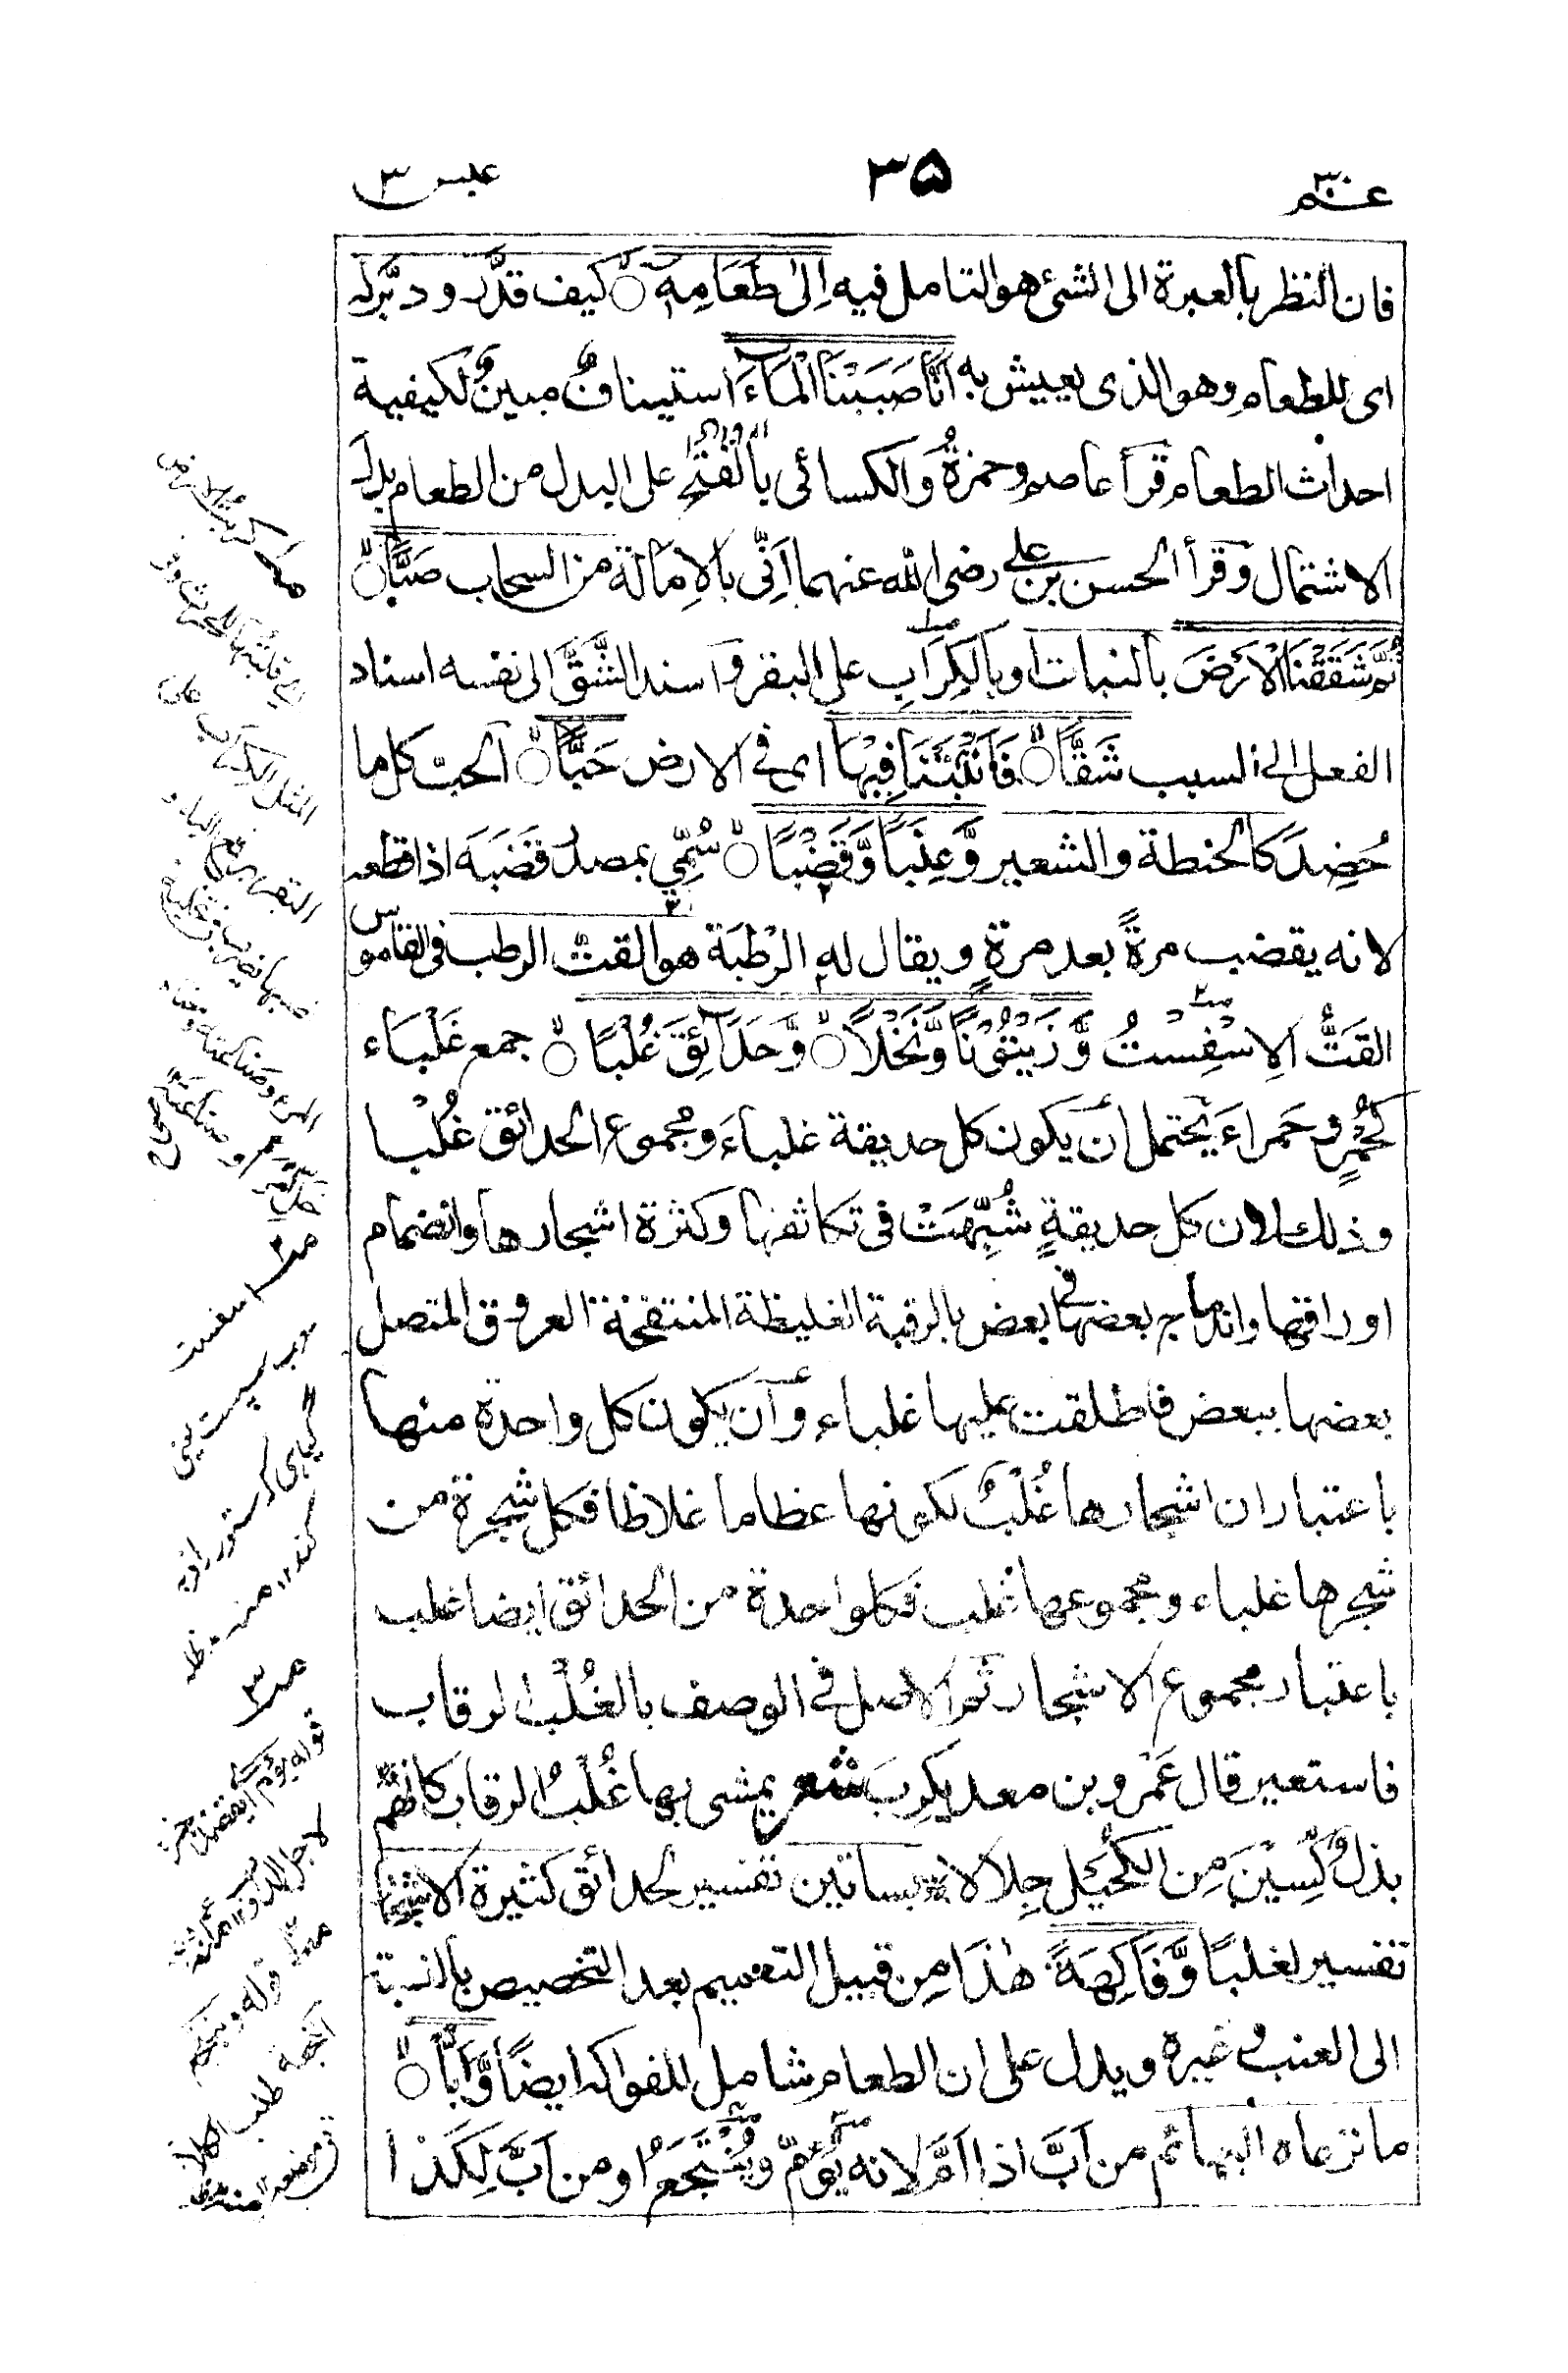 عم ۳۰
۳۵
عبس ۳
فان النظر بالعبرة الى الشئ هو التامل فيه اِلىٰ طَعَامِهٖ كيف قدَّر و دبَّر له
اى للطعام وهو الذى يعيش به اَنَّا صَبَبْنَا الْمَآءَ استينافٌ مبينٌ لكيفية
احداث الطعام قرأ عاصم وحمزةُ والكسائى بالفتح على البدل من الطعام بدل
الاشتمال وقرأ الحسن بن على رضى الله عنهما اَنّٰى بالاِمالة من السحاب صَبًّا
ثُمَّ شَقَقْنَا الْاَرْضَ بالنبات او بالكِرَابِ على البقر و اسند الشَّقَّ الى نفسه اسناد
الفعل الى السبب شَقًّا فَاَنْۢبَتْنَا فِيْهَا اى فى الارض حَبًّا الحبّ كل ما
حُصِدَ كالحنطة والشعير وَّعِنَبًا وَّقَضْبًا سُمِّي بمصدر قَضَبَه اذا قطعه
لانه يقضب مرةً بعد مرةٍ ويقال له الرَطْبَة هو القتّ الرطب فى القاموس
القَتُّ الاِسْفِسْتُ وَّزَيْتُوْنًا وَّنَخْلًا وَّحَدَآئِقَ غُلْبًا جمع غَلْبَاء
كحُمْرٍ فى حَمراءَ يحتمل أن يكون كل حديقة غلباءَ ومجموع الحدائق غُلْبا
وذلك لان كل حديقةٍ شُبِّهَتْ فى تكاثفها وكثرة اشجارها وانضمام
اوراقها واندماج بعضها فى بعض بالرقبة الغليظة المنتفخة العروق المتصل
بعضها ببعض فاطلقت عليها غلباء وأن يكون كل واحدة منها
باعتبار ان اشجارها غُلْبٌ لكونها عظاما غلاظا فكل شجرة من
شجرها غلباء ومجموعها غلب فكل واحدة من الحدائق ايضا غلب
باعتبار مجموع الاشجار ثم الاصل فى الوصف بالغُلْب الرقاب
فاستعير قال عَمْرو بن معديكرِبَ شعر يمشى بها غُلْبُ الرقاب كانهم
بذلٌ كُسِيْنَ مِن الكُحَيْل جِلالا بساتين تفسير لحدائق كثيرة الاشجار
تفسير لغلبًا وَّفَاكِهَةً هٰذَا مِن قبيل التعميم بعد التخصيص بالنسبة
الى العنب و غيره ويدل على ان الطعام شامل للفواكه ايضًا وَّاَبًّا
ما ترعاه البهائم من اَبَّ اذا اَمَّ لانه يُؤمّ ويُنْتَجَعُ او من اَبَّ لِكَذَا
اسفست
معرب سپست يعنى
گياهى كه ستور را
كند ۱۲ منه
قوله يؤم
قوله وينتجع
طلب الكلاء